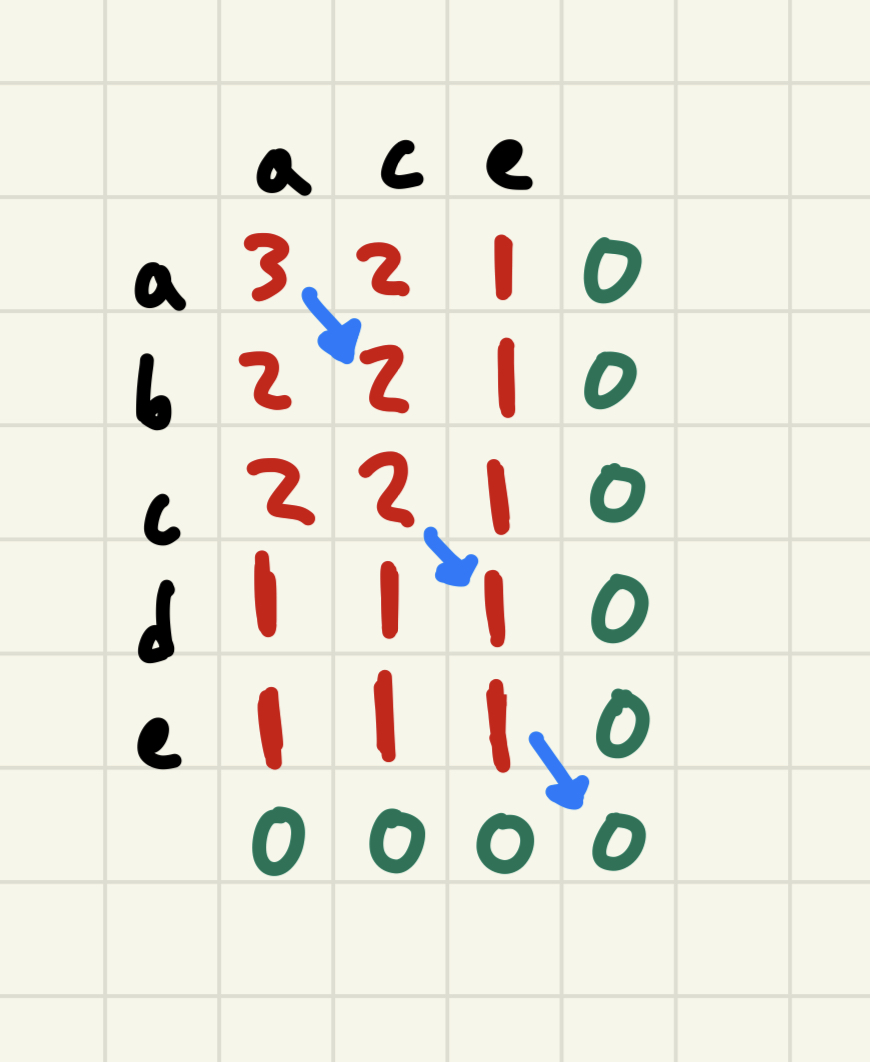 a c e
a 3 2 1 0
b 2 2 1 0
c 2 2 1 0
d 1 1 1 0
e 1 1 1 0
0 0 0 0